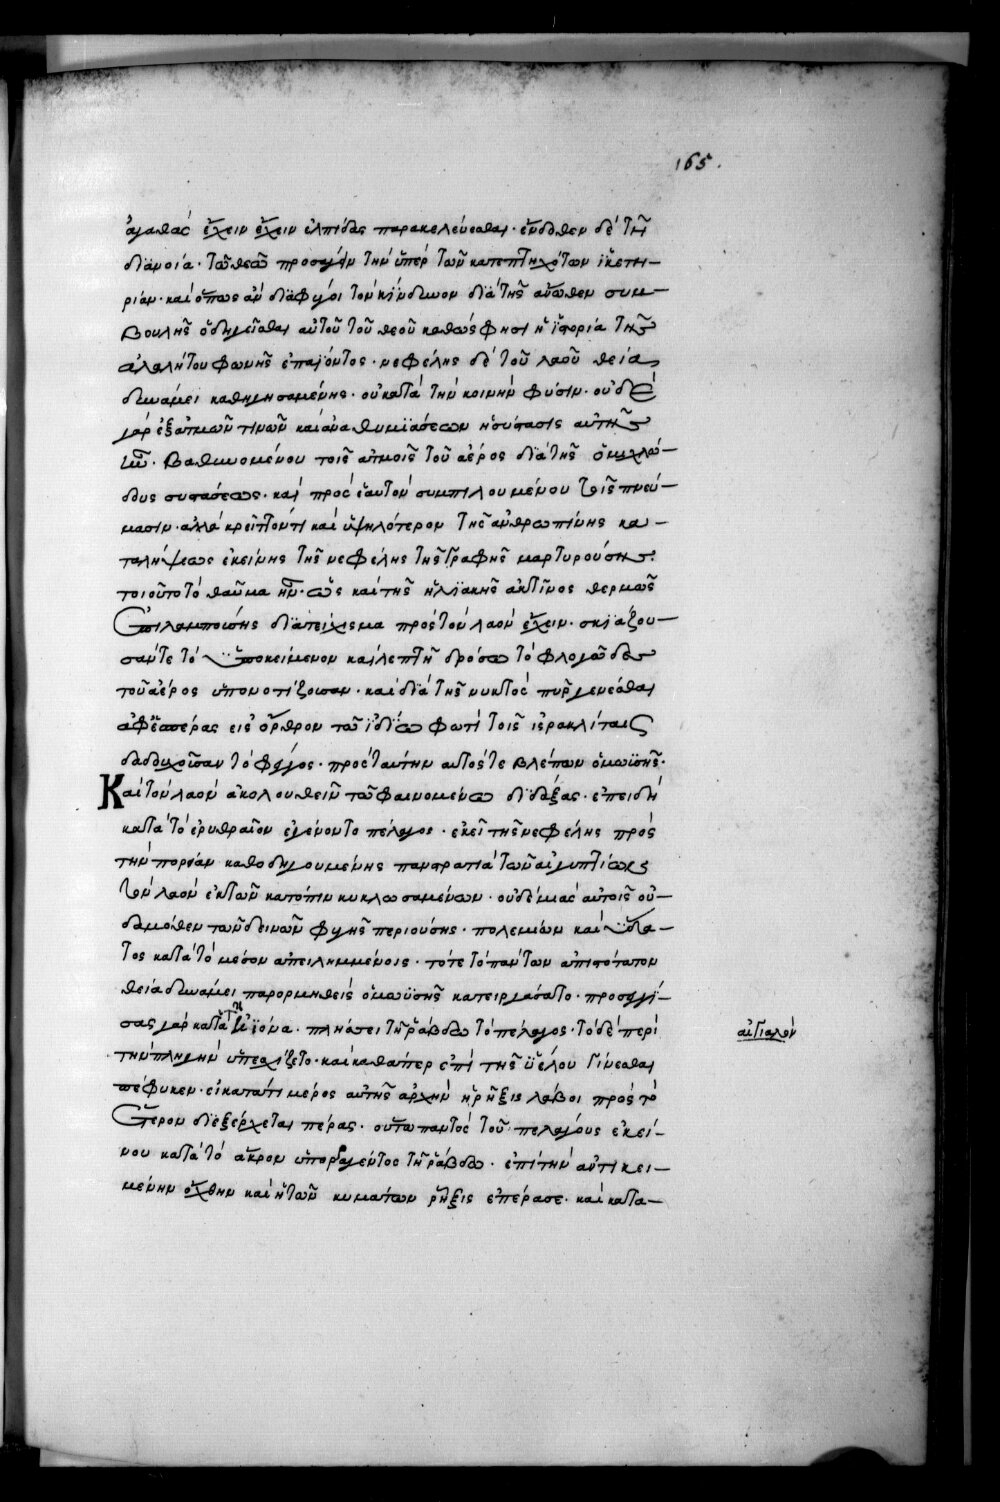 165.
ἀγαθὰς ἔχειν ἔχειν ἐλπίδας παρακελεύεσθαι· ἔνδοθεν δὲ τῆ
διανοία· τῶ θεῶ προσαγειν τὴν ὑπὲρ τῶν κατεπτηχότων ἱκετη-
ρίαν· καὶ ὅπως ἂν διαφύγοι τὸν κίνδυνον διὰ τῆς ἄνωθεν συμ-
βουλῆς ὁδηγεῖσθαι αὐτοῦ τοῦ θεοῦ καθώς φησι ἡ ἱστορία τῆς
ἀλαλήτου φωνῆς ἐπαΐοντος· νεφέλης δὲ τοῦ λαοῦ θεία
δυνάμει καθηγησαμένης· οὐ κατὰ τὴν κοινὴν φύσιν· οὐδὲ
γὰρ ἐξ ἀτμῶν τινῶν καὶ ἀναθυμιάσεων ἡ σύστασις αὐτῆς
ἦν· βαθυνομένου τοῖς ἀτμοῖς τοῦ ἀέρος διὰ τῆς ὁμιχλώ-
δους συστάσεως· καὶ πρὸς ἑαυτὸν συμπιλουμένου τοῖς πνεύ-
μασιν· ἀλλὰ κρεῖττόν τι καὶ ὑψηλότερον τῆς ἀνθρωπίνης κα-
ταλήψεως ἐκείνης τῆς νεφέλης τῆς γραφῆς μαρτυρούσης
τοιοῦτο τὸ θαῦμα ἦν· ὡς καὶ τῆς ἡλιακῆς ἀκτῖνος θερμῶς
ἐπιλαμπούσης διατείχισμα πρὸς τὸν λαὸν ἔχειν· σκιάζου-
σάν τε τὸ ὑποκείμενον καὶ λεπτῆ δρόσω τὸ φλογῶδες
τοῦ ἀέρος ὑπονοτίζουσαν· καὶ διὰ τῆς νυκτὸς πῦρ γενέσθαι
ἀφ' ἑσπέρας εἰς ὄρθρον τῶ ἰδίω φωτὶ τοῖς ἰσραηλίταις
δαδουχοῦσαν τὸ φέγγος· πρὸς ταύτην αὐτός τε βλέπων ὁ μωϋσῆς·
Καὶ τὸν λαὸν ἀκολουθεῖν τῶ φαινομένω διδάξας· ἐπειδὴ
κατὰ τὸ ἐρυθραῖον ἐγένοντο πέλαγος· ἐκεῖ τῆς νεφέλης πρὸς
τὴν πορείαν καθοδηγουμένης πανστρατιὰ τῶν αἰγυπτίων
τὸν λαὸν ἐκ τῶν κατόπιν κυκλωσαμένων· οὐδεμιᾶς αὐτοῖς οὐ-
δαμόθεν τῶν δεινῶν φυγῆς περιούσης· πολεμίων καὶ ὕδα-
τος κατὰ τὸ μέσον ἀπειλημμένοις· τότε τὸ πάντων ἀπιστότατον
θεία δυνάμει παρορμηθεὶς ὁ μωϋσῆς κατειργάσατο· προσεγγί-
σας γὰρ κατὰ τὴν ἠϊόνα· πλήσσει τῆ ῥάβδω τὸ πέλαγος· τὸ δὲ περὶ
αἰγιαλόν
τὴν πληγὴν ὑπεσχίζετο· καὶ καθάπερ ἐπὶ τῆς ὑέλου γίνεσθαι
πέφυκεν· εἰ κατά τι μέρος αὐτῆς ἀρχὴν ἡ ῥῆξις λάβοι πρὸς τὸ
ἕτερον διεξέρχεται πέρας· οὕτω παντὸς τοῦ πελάγους ἐκεί-
νου κατὰ τὸ ἄκρον ὑπορραγέντος τῆ ῥάβδω· ἐπὶ τὴν ἀντικει-
μένην ὄχθην καὶ ἡ τῶν κυμάτων ῥῆξις ἐπέρασε· καὶ κατα-